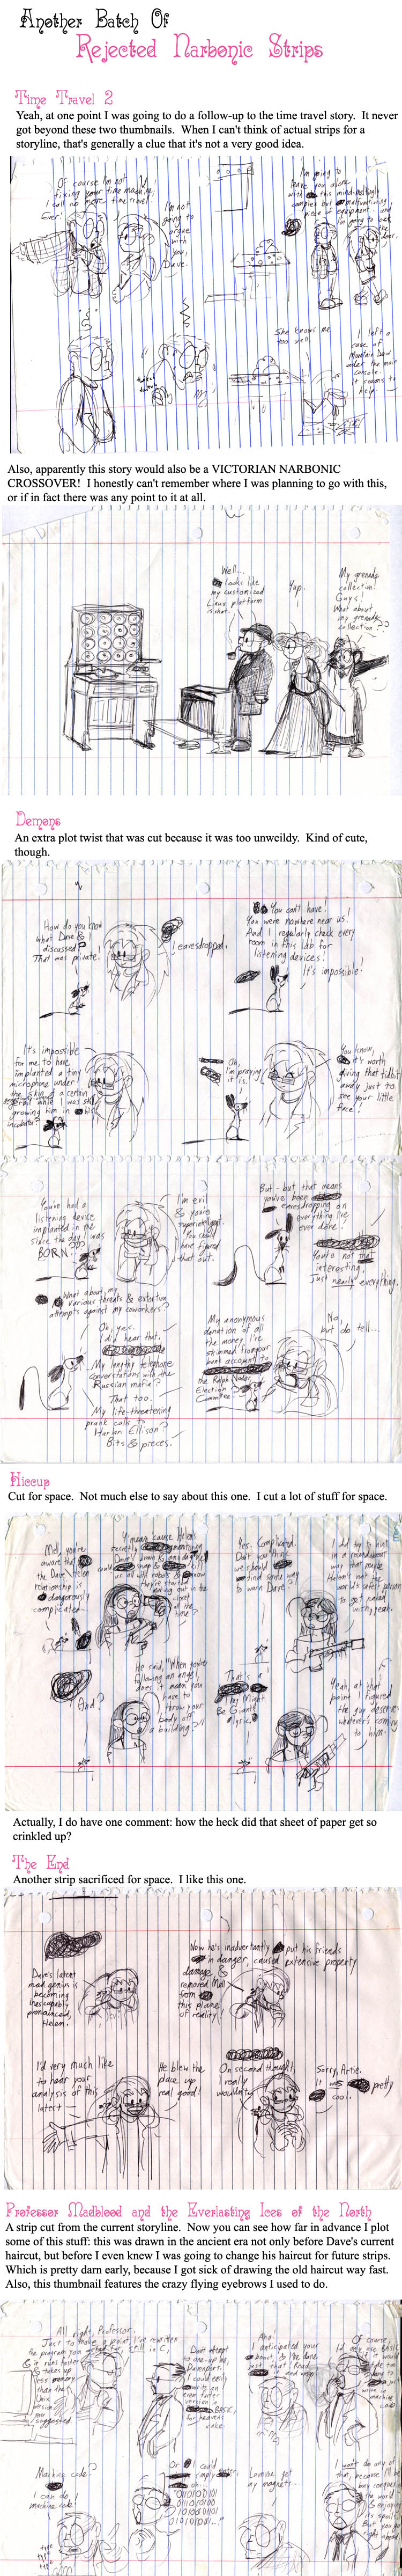 Another Batch Of
Rejected Narbonic Strips
Time Travel 2
Yeah, at one point I was going to do a follow-up to the time travel story. It never
got beyond these two thumbnails. When I can't think of actual strips for a
storyline, that's generally a clue that it's not a very good idea.
Of course I'm not
fixing your time machine.
I call no more time travel.
Ever!
I'm not
going to
argue
with
you,
Dave.
I'm going to
leave you alone
with this mind-
complex but malfunctioning
piece of equipment, and
I'm going to lock
the
door.
She knows me
too well.
I left a
case of
Mountain Dew
under the main
console.
It seems to
help.
Also, apparently this story would also be a VICTORIAN NARBONIC
CROSSOVER! I honestly can't remember where I was planning to go with this,
or if in fact there was any point to it at all.
Well...
looks like
my customized
Linux platform
is shot.
Yup.
My grenade
collection!
Guys!
What about
my grenade
collection??
Demons
An extra plot twist that was cut because it was too unweildy. Kind of cute,
though.
How do you know
what Dave &
discussed?
That was private!
I eavesdropped.
You can't have!
You were nowhere near us!
And I regularly check every
room in this lab for
listening devices!
It's impossible!
It's impossible
for me to have
implanted a tiny
microphone under
the skin of a certain
gerbil while I was still
growing him in his
incubator?
Oh,
I'm praying
it is!
You know,
it's worth
giving that tidbit
away just to
see your little
face!
You've had a
listening device
implanted in me
since the day I was
BORN?
I'm evil
& your
superintelligent.
You should
have figured
that out.
But - but that means
you've been
eavesdropping on
everything I've
ever done!
You're not that
interesting.
Just nearly everything.
What about my
various threats & extortion
attempts against my coworkers?
Oh, yes.
I did hear that.
My lengthy telephone
conversations with the
Russian mafia?
That too.
My life-threatening
prank calls to
Harlan Ellison?
Bits & pieces.
My anonymous
donation of all
the money I've
skimmed from your
bank account to
the Ralph Nader
Election
Committee?
No,
but do tell...
Hiccup
Cut for space. Not much else to say about this one. I cut a lot of stuff for space.
Mell, you're
aware that
the Dave/Helen
relationship is
dangerously
complicated
Y'mean cause Helen's
secretly
Dave
they've started
making out in the
closet
all the
time?
Yes. Complicated.
Don't you think
we should
find some way
to warn Dave?
I did try to hint
in a roundabout
way that maybe
Helen's not the
world's safest person
to get naked
with, yeah.
And?
He said, "When you're
following an angel,
does it mean you
have to
throw your
body off
a building?"
That's a
They Might
Be Giants
lyric.
Yeah, at that
point I figured
the guy deserves
whatever's coming
to him.
Actually, I do have one comment: how the heck did that sheet of paper get so
crinkled up?
The End
Another strip sacrificed for space. I like this one.
Dave's latent
mad genius is
becoming
inescapably
pronounced,
Helen!
Now he's inadvertently put his friends
in danger, caused extensive property
damage &
removed Mell
from
this plane
of reality!
I'd very much like
to hear your
analysis of this
latest —
He blew the
place up
real good!
On second thought,
I really
wouldn't.
Sorry, Artie.
It was pretty
cool.
Professor Madblood and the Everlasting Ices of the North
A strip cut from the current storyline. Now you can see how far in advance I plot
some of this stuff: this was drawn in the ancient era not only before Dave's current
haircut, but before I even knew I was going to change his haircut for future strips.
Which is pretty darn early, because I got sick of drawing the old haircut way fast.
Also, this thumbnail features the crazy flying eyebrows I used to do.
All right, Professor.
Just to make a point, I've rewritten
the program you
in C.
It runs faster
& takes up
less memory
than the
Unix
version
you
suggested.
Don't attempt
to one-up me,
Davenport!
I could easily
write an
even faster
version in
BASIC,
for heaven's
sake.
Aha!
I anticipated your
boast, & I've done
just that! Read
and weep
Of course,
I'd
BASIC
would
machine
code.
Machine code?
I can do
machine code!
type
type
type
Or I could
simply
oh...
Lemme get
my magnets...
I won't do any of
that, because I'll be
busy conquering
the world
& enjoying
its spoils.
But you
go
ahead.